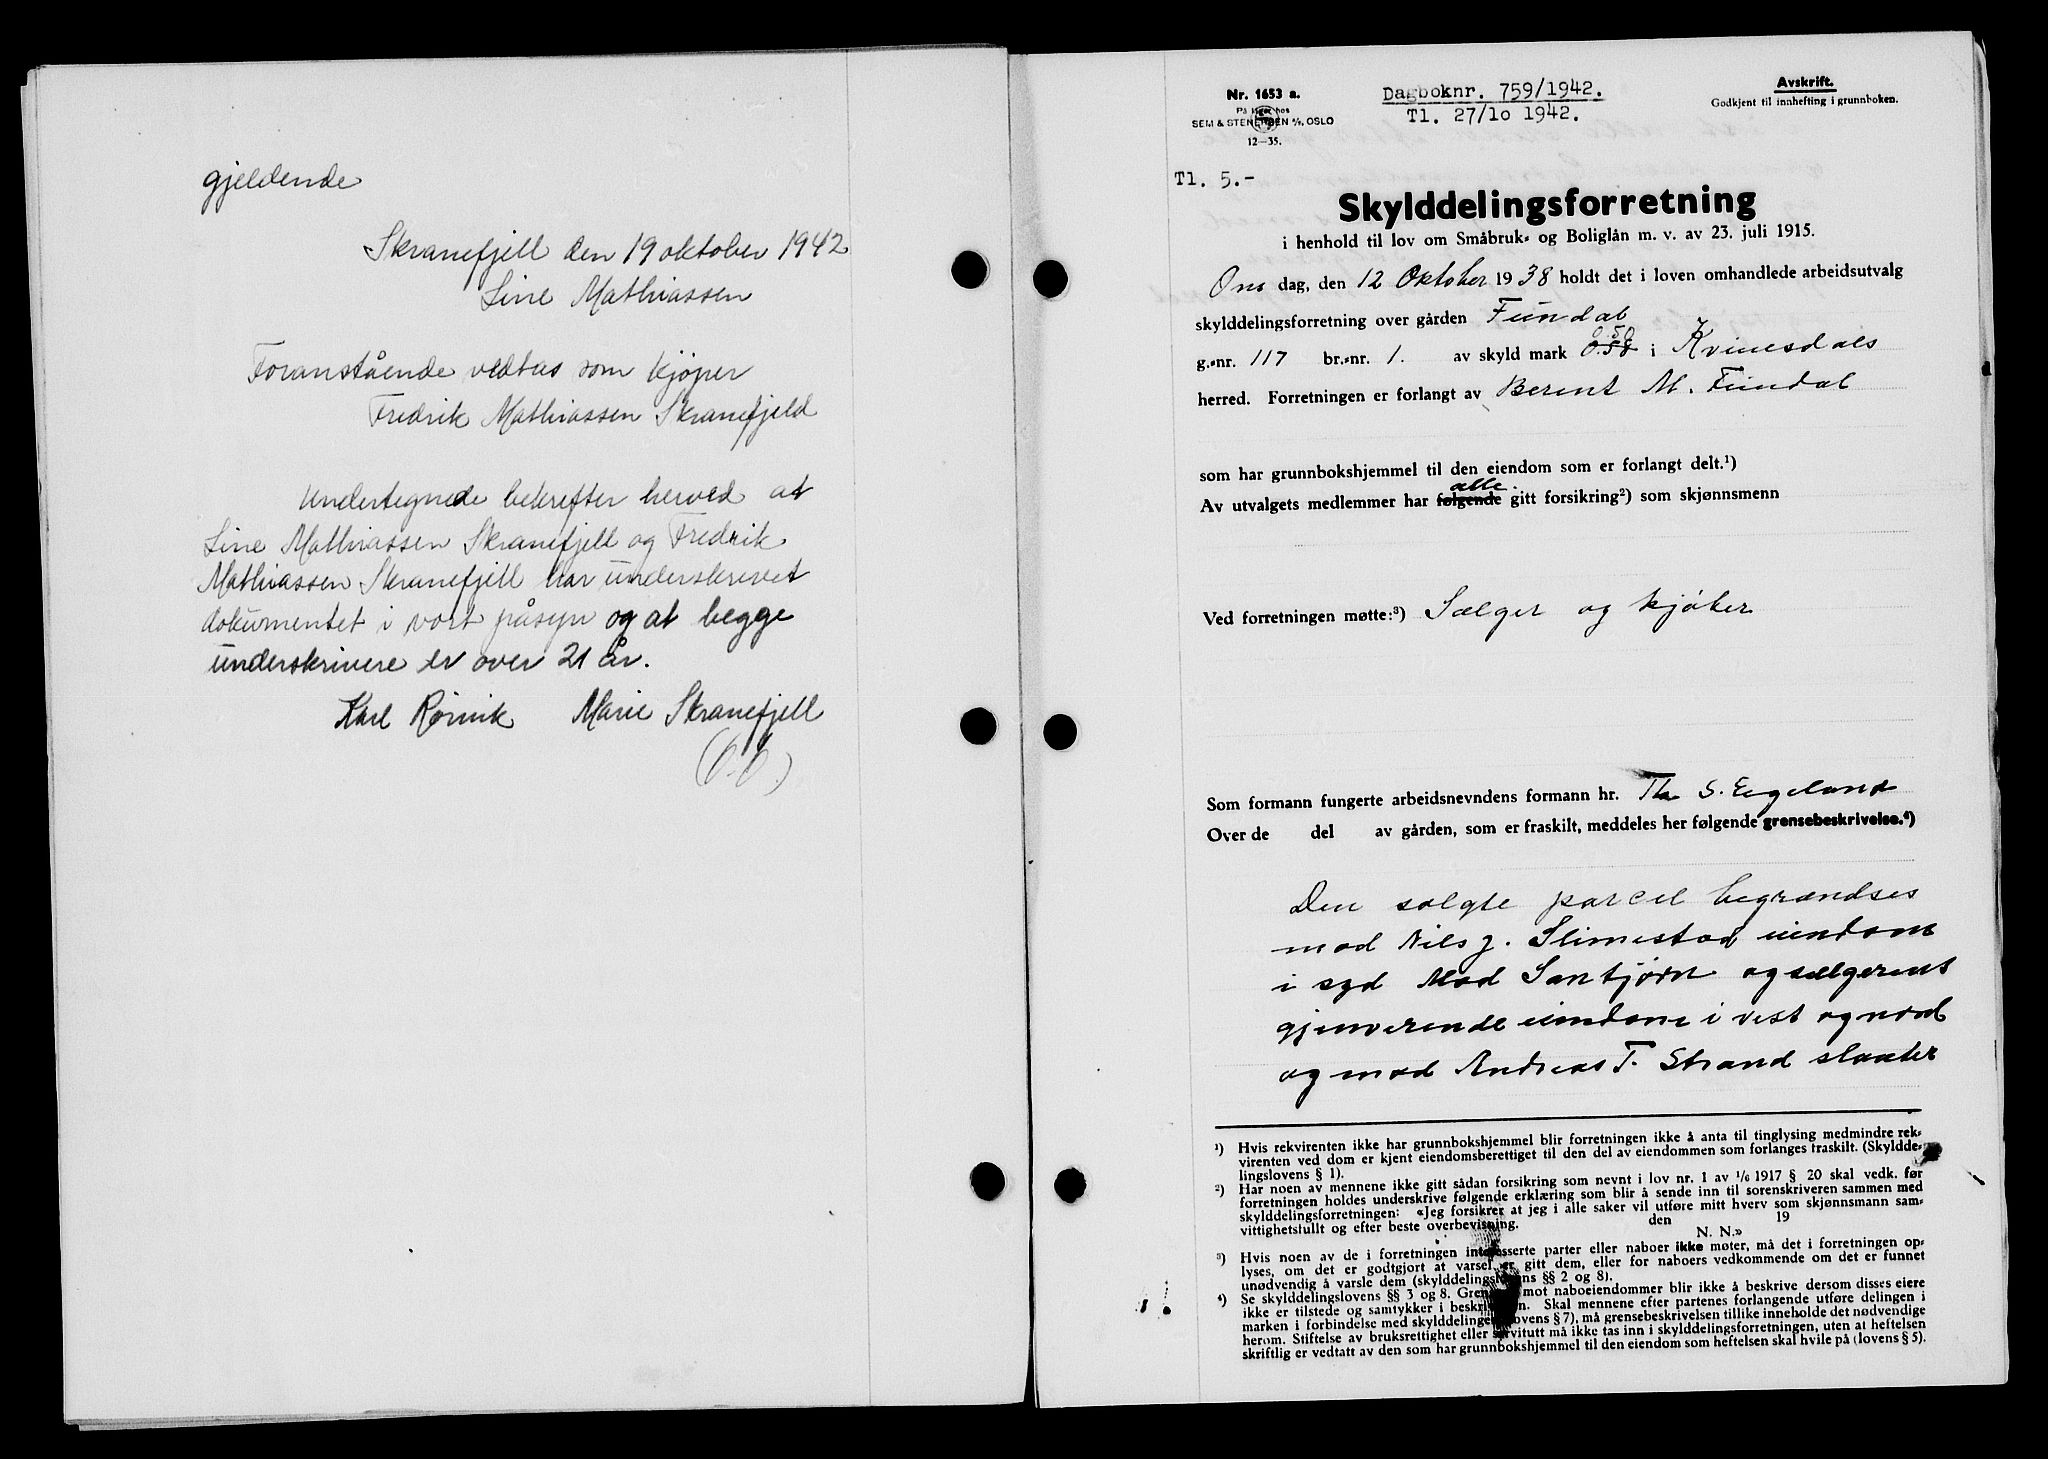 gjeldende
Skranefjell den 19 oktober 1942
Line Mathiassen
Foranstående vedtas som kjøper
Fredrik Mathiassen Skranefjeld
Undertegnede bekrefter herved at
Line Mathiassen Skranefjell og Fredrik
Mathiassen Skranefjell har underskrevet
dokumentet i vort påsyn og at begge
underskrivere er over 21 år.
Karl Rørvik Marie Skranefjell
Nr. 1653 a.
På lager hos
SEM & STENERSEN A/S, OSLO
12—35.
Dagboknr. 759/1942.
Tl. 27/10 1942.
Avskrift.
Godkjent til innhefting i grunnboken.
Tl. 5.-
Skylddelingsforretning
i henhold til lov om Småbruk- og Boliglån m. v. av 23. juli 1915.
Ons dag, den 12 Oktober 1938 holdt det i loven omhandlede arbeidsutvalg
skylddelingsforretning over gården Fundal
g.-nr. 117 br.-nr. 1. av skyld mark 0.58 0.50 i Kvinesdals
herred. Forretningen er forlangt av Berent M. Fundal
som har grunnbokshjemmel til den eiendom som er forlangt delt.¹)
Av utvalgets medlemmer har følgende alle gitt forsikring²) som skjønnsmenn
Ved forretningen møtte:³) Sælger og kjøber
Som formann fungerte arbeidsnevndens formann hr. Th S. Egeland
Over de del av gården, som er fraskilt, meddeles her følgende grensebeskrivelse.⁴)
Den solgte parcel begrændses
mod Nils J. Slimestad eiendom
i syd Mod Santjørn og sælgerens
gjenverende eiendom i vest og nord
og mod Andreas T. Strand slaater
¹) Hvis rekvirenten ikke har grunnbokshjemmel blir forretningen ikke å anta til tinglysing medmindre rek-
virenten ved dom er kjent eiendomsberettiget til den del av eiendommen som forlanges fraskilt. (Skyldde-
lingslovens § 1).
²) Har noen av mennene ikke gitt sådan forsikring som nevnt i lov nr. 1 av 1/6 1917 § 20 skal vedk. før
forretningen holdes underskrive følgende erklæring som blir å sende inn til sorenskriveren sammen med
skylddelingsforretningen: «Jeg forsikrer at jeg i alle saker vil utføre mitt hverv som skjønnsmann sam-
vittighetsfullt og efter beste overbevisning. den 19
N. N.»
³) Hvis noen av de i forretningen interesserte parter eller naboer ikke møter, må det i forretningen op-
lyses, om det er godtgjort at varsel er gitt dem, eller for naboers vedkommende om det er funnet
unødvendig å varsle dem (skylddelingslovens §§ 2 og 8).
⁴) Se skylddelingslovens §§ 3 og 8. Grenser mot naboeiendommer blir ikke å beskrive dersom disses eiere
ikke er tilstede og samtykker i beskrivelsen. Skal mennene efter partenes forlangende utføre delingen i
marken i forbindelse med skylddelingen (lovens § 7), må grensebeskrivelsen tillike inneholde det nødvendige
herom. Stiftelse av bruksrettighet eller servitutt må ikke tas inn i skylddelingsforretningen, uten at heftelsen
skriftlig er vedtatt av den som har grunnbokshjemmel til den eiendom som heftelsen skal hvile på (lovens § 5).